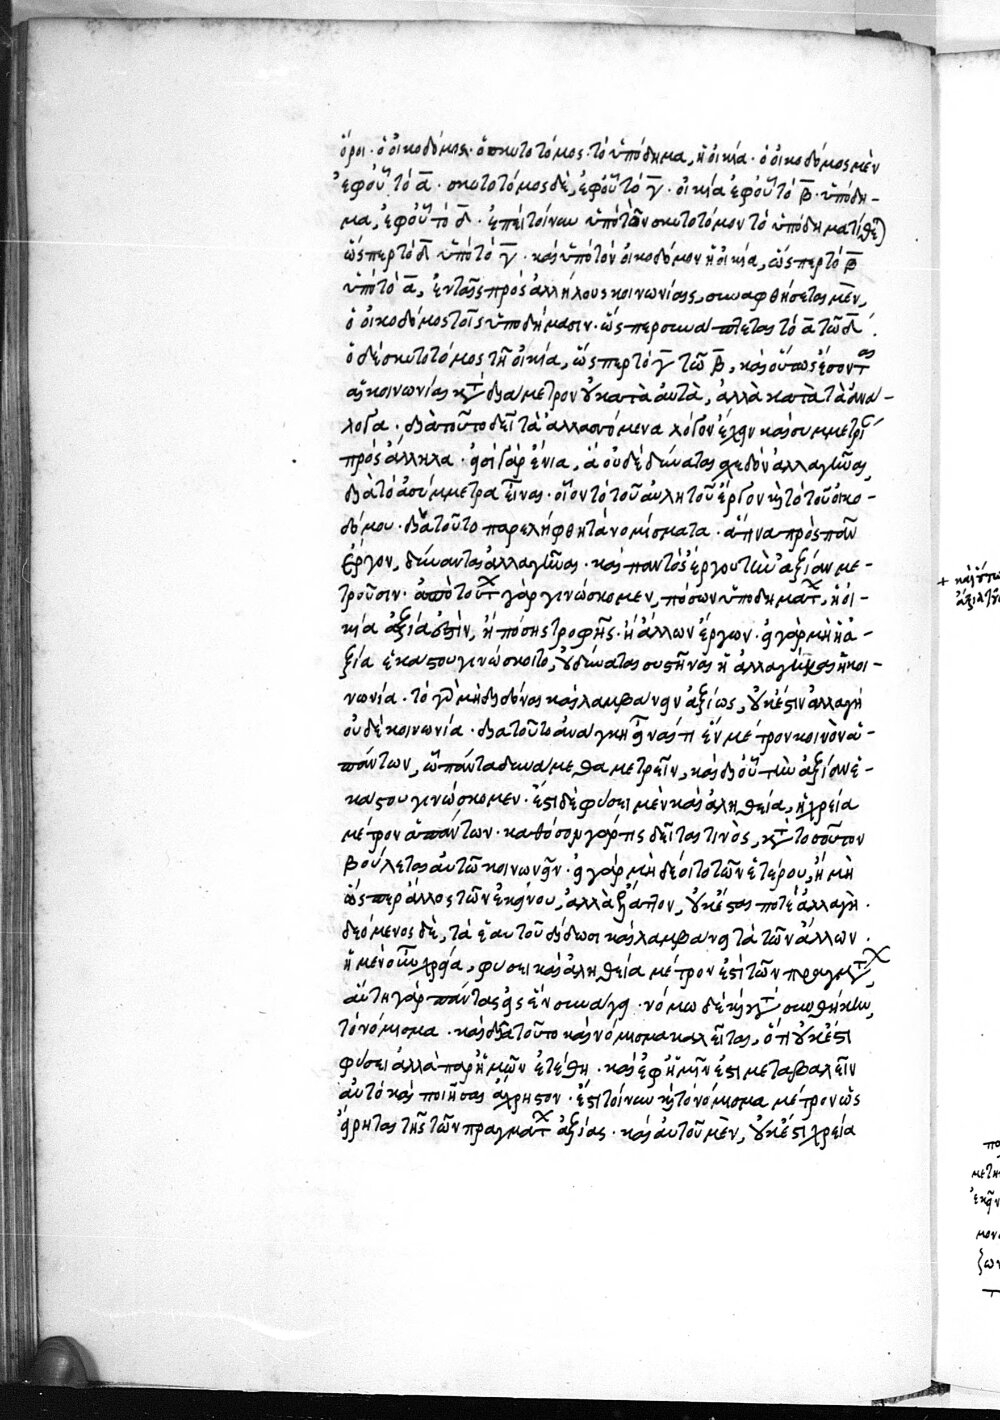 ὅροι· ὁ οἰκοδόμος· ὁ σκυτοτόμος· τὸ ὑπόδημα, ἡ οἰκία· ὁ οἰκοδόμος μὲν
ἐφ' οὗ τὸ α̅· σκυτοτόμος δὲ, ἐφ' οὗ τὸ γ̅· οἰκία ἐφ' οὗ τὸ β̅· ὑπόδη-
μα, ἐφ' οὗ τὸ δ̅· ἐπεὶ τοίνυν ὑπὸ τὸν σκυτοτόμον τὸ ὑπόδημα τίθε
ὥσπερ τὸ δ̅ ὑπὸ τὸ γ̅· καὶ ὑπὸ τὸν οἰκοδόμον ἡ οἰκία, ὥσπερ τὸ β̅
ὑπὸ τὸ α̅, ἐν ταῖς πρὸς ἀλλήλους κοινωνίαις, συναφθήσεται μὲν,
ὁ οἰκοδόμος τοῖς ὑποδήμασιν· ὥσπερ συνάπτεται τὸ α̅ τῷ δ̅·
ὁ δὲ σκυτοτόμος τῇ οἰκία, ὥσπερ τὸ γ̅ τῷ β̅, καὶ οὕτως ἔσονται
αἱ κοινωνίαι κατὰ διάμετρον οὐ κατὰ αὐτὰ, ἀλλὰ κατὰ τὰ ἀνα-
λογα· διὰ τοῦτο δεῖ τὰ ἀλλασσόμενα λόγον ἔχειν καὶ συμμετρί
πρὸς ἄλληλα· εἰσὶ γὰρ ἔνια, ἃ οὐδὲ δύναται σχεδὸν ἀλλαγῆναι,
διὰ τὸ ἀσύμμετρα εἶναι· οἷον τὸ τοῦ αὐλητοῦ ἔργον καὶ τὸ τοῦ οἰκο-
δόμου· διὰ τοῦτο παρελήφθη τὰ νομίσματα· ἅτινα πρὸς πᾶν
ἔργον, δύνανται ἀλλαγῆναι· καὶ παντὸς ἔργου τὴν ἀξίαν με-
τροῦσιν· ἀπὸ τούτων γὰρ γινώσκομεν, πόσων ὑποδημάτων, ἡ οἰ-
κία ἀξία ἐστὶν, ἢ πόσης τροφῆς· ἢ ἄλλων ἔργων· εἰ γὰρ μὴ ἡ ἀ-
ξία ἑκάστου γινώσκοιτο, οὐ δύναται συστῆναι ἢ ἀλλαγὴ καὶ ἡ κοι-
νωνία· τὸ γὰρ μὴ διδόναι καὶ λαμβάνειν ἀξίως, οὐκ ἔστιν ἀλλαγὴ
οὐδὲ κοινωνία· διατοῦτο ἀνάγκη εἶναί τι ἓν μέτρον κοινὸν ἁ-
πάντων, ᾧ πάντα δυνάμεθα μετρεῖν, καὶ δι' οὗ τὴν ἀξίαν ἑ-
κάστου γινώσκομεν· ἔστι δὲ φύσει μὲν καὶ ἀληθεία, ἡ χρεία
μέτρον ἁπάντων· καθόσον γάρ τις δεῖται τινὸς, κατὰ τοσοῦτον
βούλεται αὐτῷ κοινωνεῖν· εἰ γὰρ μὴ δέοιτο τῶν ἑτέρου, ἢ μὴ
ὥσπερ ἄλλος τῶν ἐκείνου, ἀλλὰ ἔλαττον, οὐκ ἔσται ποτὲ ἀλλαγὴ·
δεόμενος δὲ, τὰ ἑαυτοῦ δίδωσι καὶ λαμβάνει τὰ τῶν ἄλλων·
ἡ μὲν οὖν χρεία, φύσει καὶ ἀληθεία μέτρον ἐστὶ τῶν πραγμάτων,
αὕτη γὰρ πάντας εἰς ἓν συνάγει· νόμω δὲ καὶ κατὰ συνθήκην,
τὸ νόμισμα· καὶ διὰ τοῦτο καὶ νόμισμα καλεῖται, ὅτι οὐκ ἔστι
φύσει ἀλλὰ παρ' ἡμῶν ἐτέθη· καὶ ἐφ' ἡμῖν ἐστι μεταβαλεῖν
αὐτὸ καὶ ποιῆσαι ἄχρηστον· ἔστι τοίνυν καὶ τὸ νόμισμα μέτρον ὡς
εἴρηται τῆς τῶν πραγμάτων ἀξίας· καὶ αὐτοῦ μὲν, οὐκ ἔστι χρεία